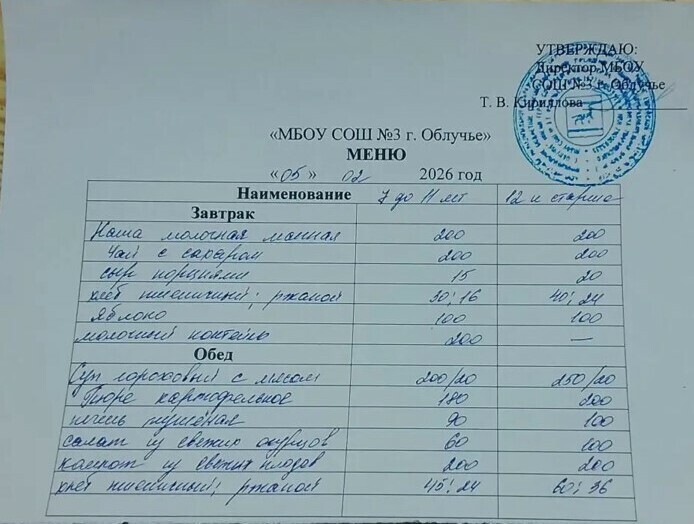 УТВЕРЖДАЮ:
Директор МБОУ
СОШ №3 г. Облучье
Т. В. Кириллова
«МБОУ СОШ №3 г. Облучье»
МЕНЮ
«05» 02 2026 год
Наименование 7 до 11 лет 12 и старше
Завтрак
Каша молочная манная 200 200
Чай с сахаром 200 200
сыр порциями 15 20
хлеб пшеничный; ржаной 30; 16 40; 24
Яблоко 100 100
молочный коктейль 200 —
Обед
Суп гороховый с мясом 200/20 250/20
Пюре картофельное 180 200
печень тушеная 90 100
салат из свежих огурцов 60 100
компот из свежих плодов 200 200
хлеб пшеничный; ржаной 45; 24 60; 36